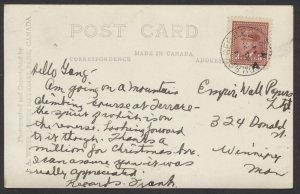 POST CARD
CORRESPONDENCE
MADE IN CANADA
ADDRESS
Hello Gang:
Am going on a mountain
climbing course at Terrace -
the spirit of which is on
the reverse. Looking forward
to it though. Thanks a
million for Christmas
I can assure you it was
really appreciated.
Regards Frank
Empire Wall Papers
Ltd
324 Donald
St.
Winnipeg
Man